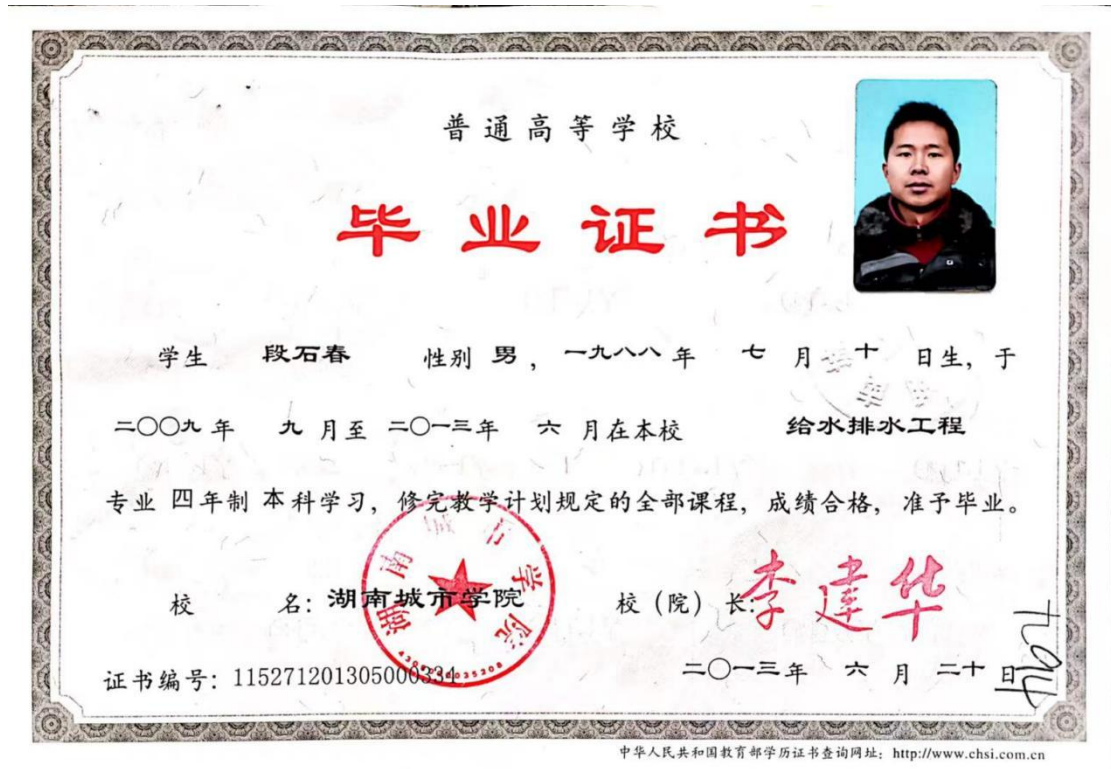 普通高等学校
毕业证书
学生 段石春 性别 男，一九八八年 七 月 十 日生，于
二〇〇九年 九 月至 二〇一三年 六 月在本校 给水排水工程
专业 四年制 本科学习，修完教学计划规定的全部课程，成绩合格，准予毕业。
湖南城市学院
校 名：湖南城市学院 校（院）长：李建华
证书编号：115271201305000334 二〇一三年 六 月 二十 日
中华人民共和国教育部学历证书查询网址：http://www.chsi.com.cn